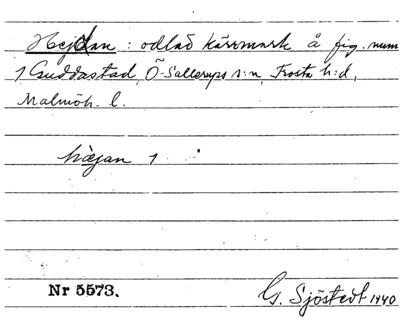 Hejdan : odlad kärrmark å fig. num
1 Guddastad, Ö-Sallerups s:n, Frosta h:d,
Malmöh. l.
hæjan 1
Nr 5573.
G. Sjöstedt 1940